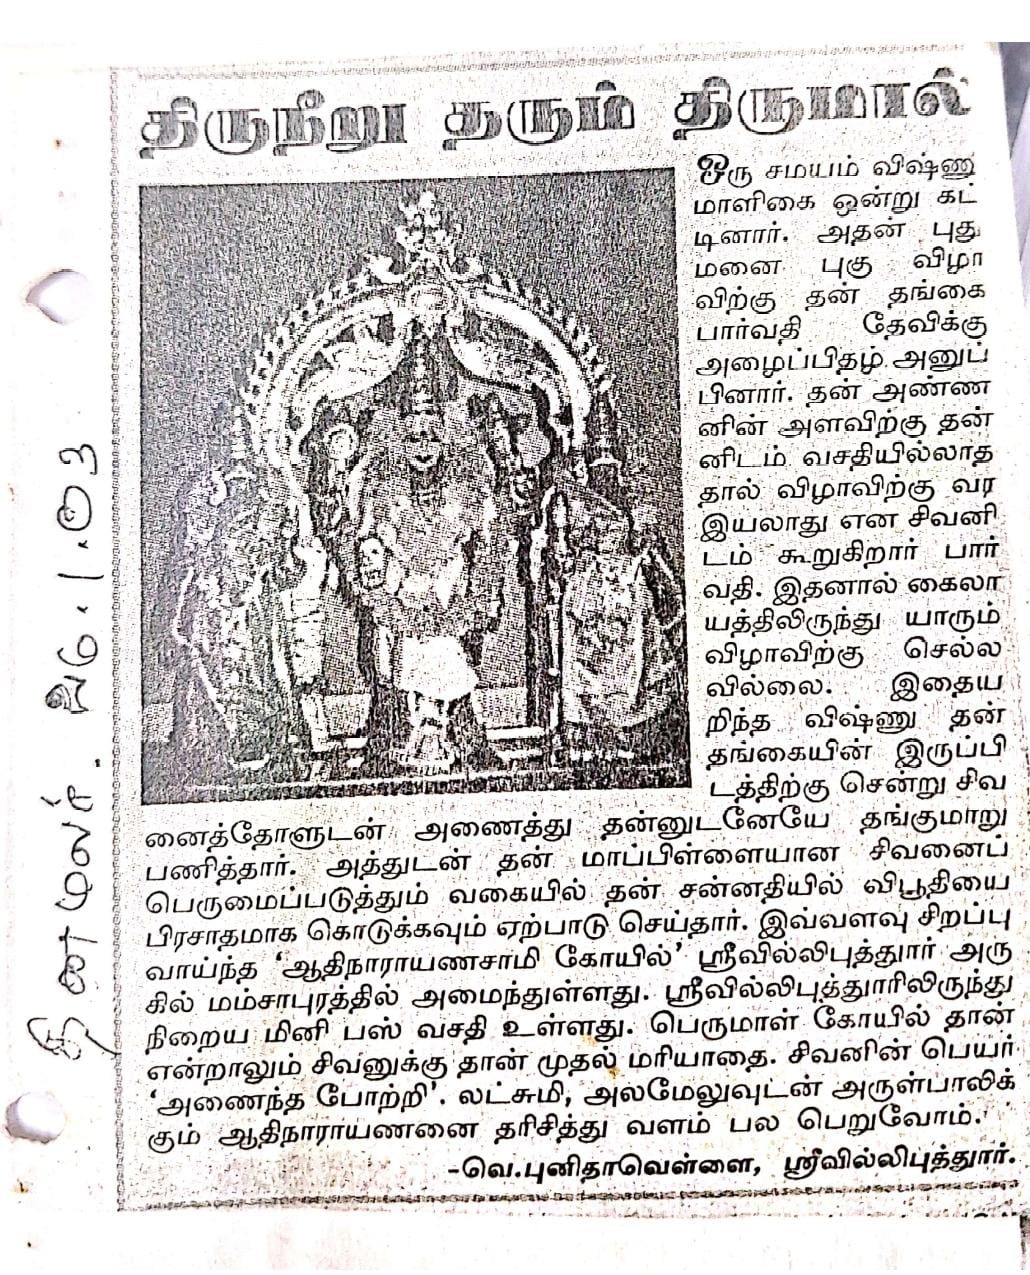 திருநீறு தரும் திருமால்
ஒரு சமயம் விஷ்ணு
மாளிகை ஒன்று கட்
டினார். அதன் புது
மனை புகு விழா
விற்கு தன் தங்கை
பார்வதி தேவிக்கு
அழைப்பிதழ் அனுப்
பினார். தன் அண்ண
னின் அளவிற்கு தன்
னிடம் வசதியில்லாத
தால் விழாவிற்கு வர
இயலாது என சிவனி
டம் கூறுகிறார் பார்
வதி. இதனால் கைலா
யத்திலிருந்து யாரும்
விழாவிற்கு செல்ல
வில்லை. இதைய
றிந்த விஷ்ணு தன்
தங்கையின் இருப்பி
டத்திற்கு சென்று சிவ
னைத்தோளுடன் அணைத்து தன்னுடனேயே தங்குமாறு
பணித்தார். அத்துடன் தன் மாப்பிள்ளையான சிவனைப்
பெருமைப்படுத்தும் வகையில் தன் சன்னதியில் விபூதியை
பிரசாதமாக கொடுக்கவும் ஏற்பாடு செய்தார். இவ்வளவு சிறப்பு
வாய்ந்த ‘ஆதிநாராயணசாமி கோயில்’ ஸ்ரீவில்லிபுத்தூர் அரு
கில் மம்சாபுரத்தில் அமைந்துள்ளது. ஸ்ரீவில்லிபுத்தூரிலிருந்து
நிறைய மினி பஸ் வசதி உள்ளது. பெருமாள் கோயில் தான்
என்றாலும் சிவனுக்கு தான் முதல் மரியாதை. சிவனின் பெயர்
‘அணைந்த போற்றி’. லட்சுமி, அலமேலுவுடன் அருள்பாலிக்
கும் ஆதிநாராயணனை தரிசித்து வளம் பல பெறுவோம்.
-வெ.புனிதாவெள்ளை, ஸ்ரீவில்லிபுத்தூர்.
தினமலர். 26.1.03